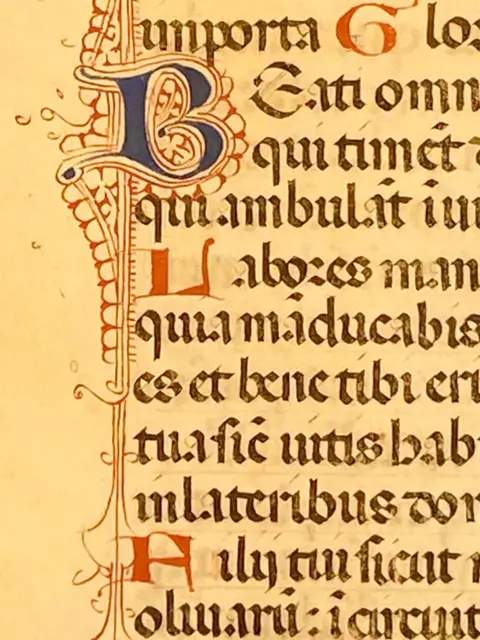 in porta G lor
BEati omn
qui timēt d
qui ambulāt ī ui
Labores man
quia māducabis
es et bene tibi eri
tua sic̄ uitis hab
in lateribus dom
Filij tui sicut n
oliuarū: ī circuit